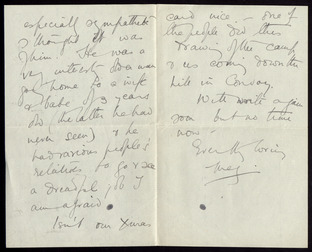 especially sympathetic
I thought it was
of him. He was a
very interesting man
going home to a wife
& babe of 3 years
old (the latter he had
never seen) & he
had various people's
relations to go & see
a dreadful
am afraid.
Isn't our Xmas
card nice – one of
the people did this
drawing of the camp
& us coming down the
hill in Convoy.
Will write again
soon but no time
now –
Ever yr loving